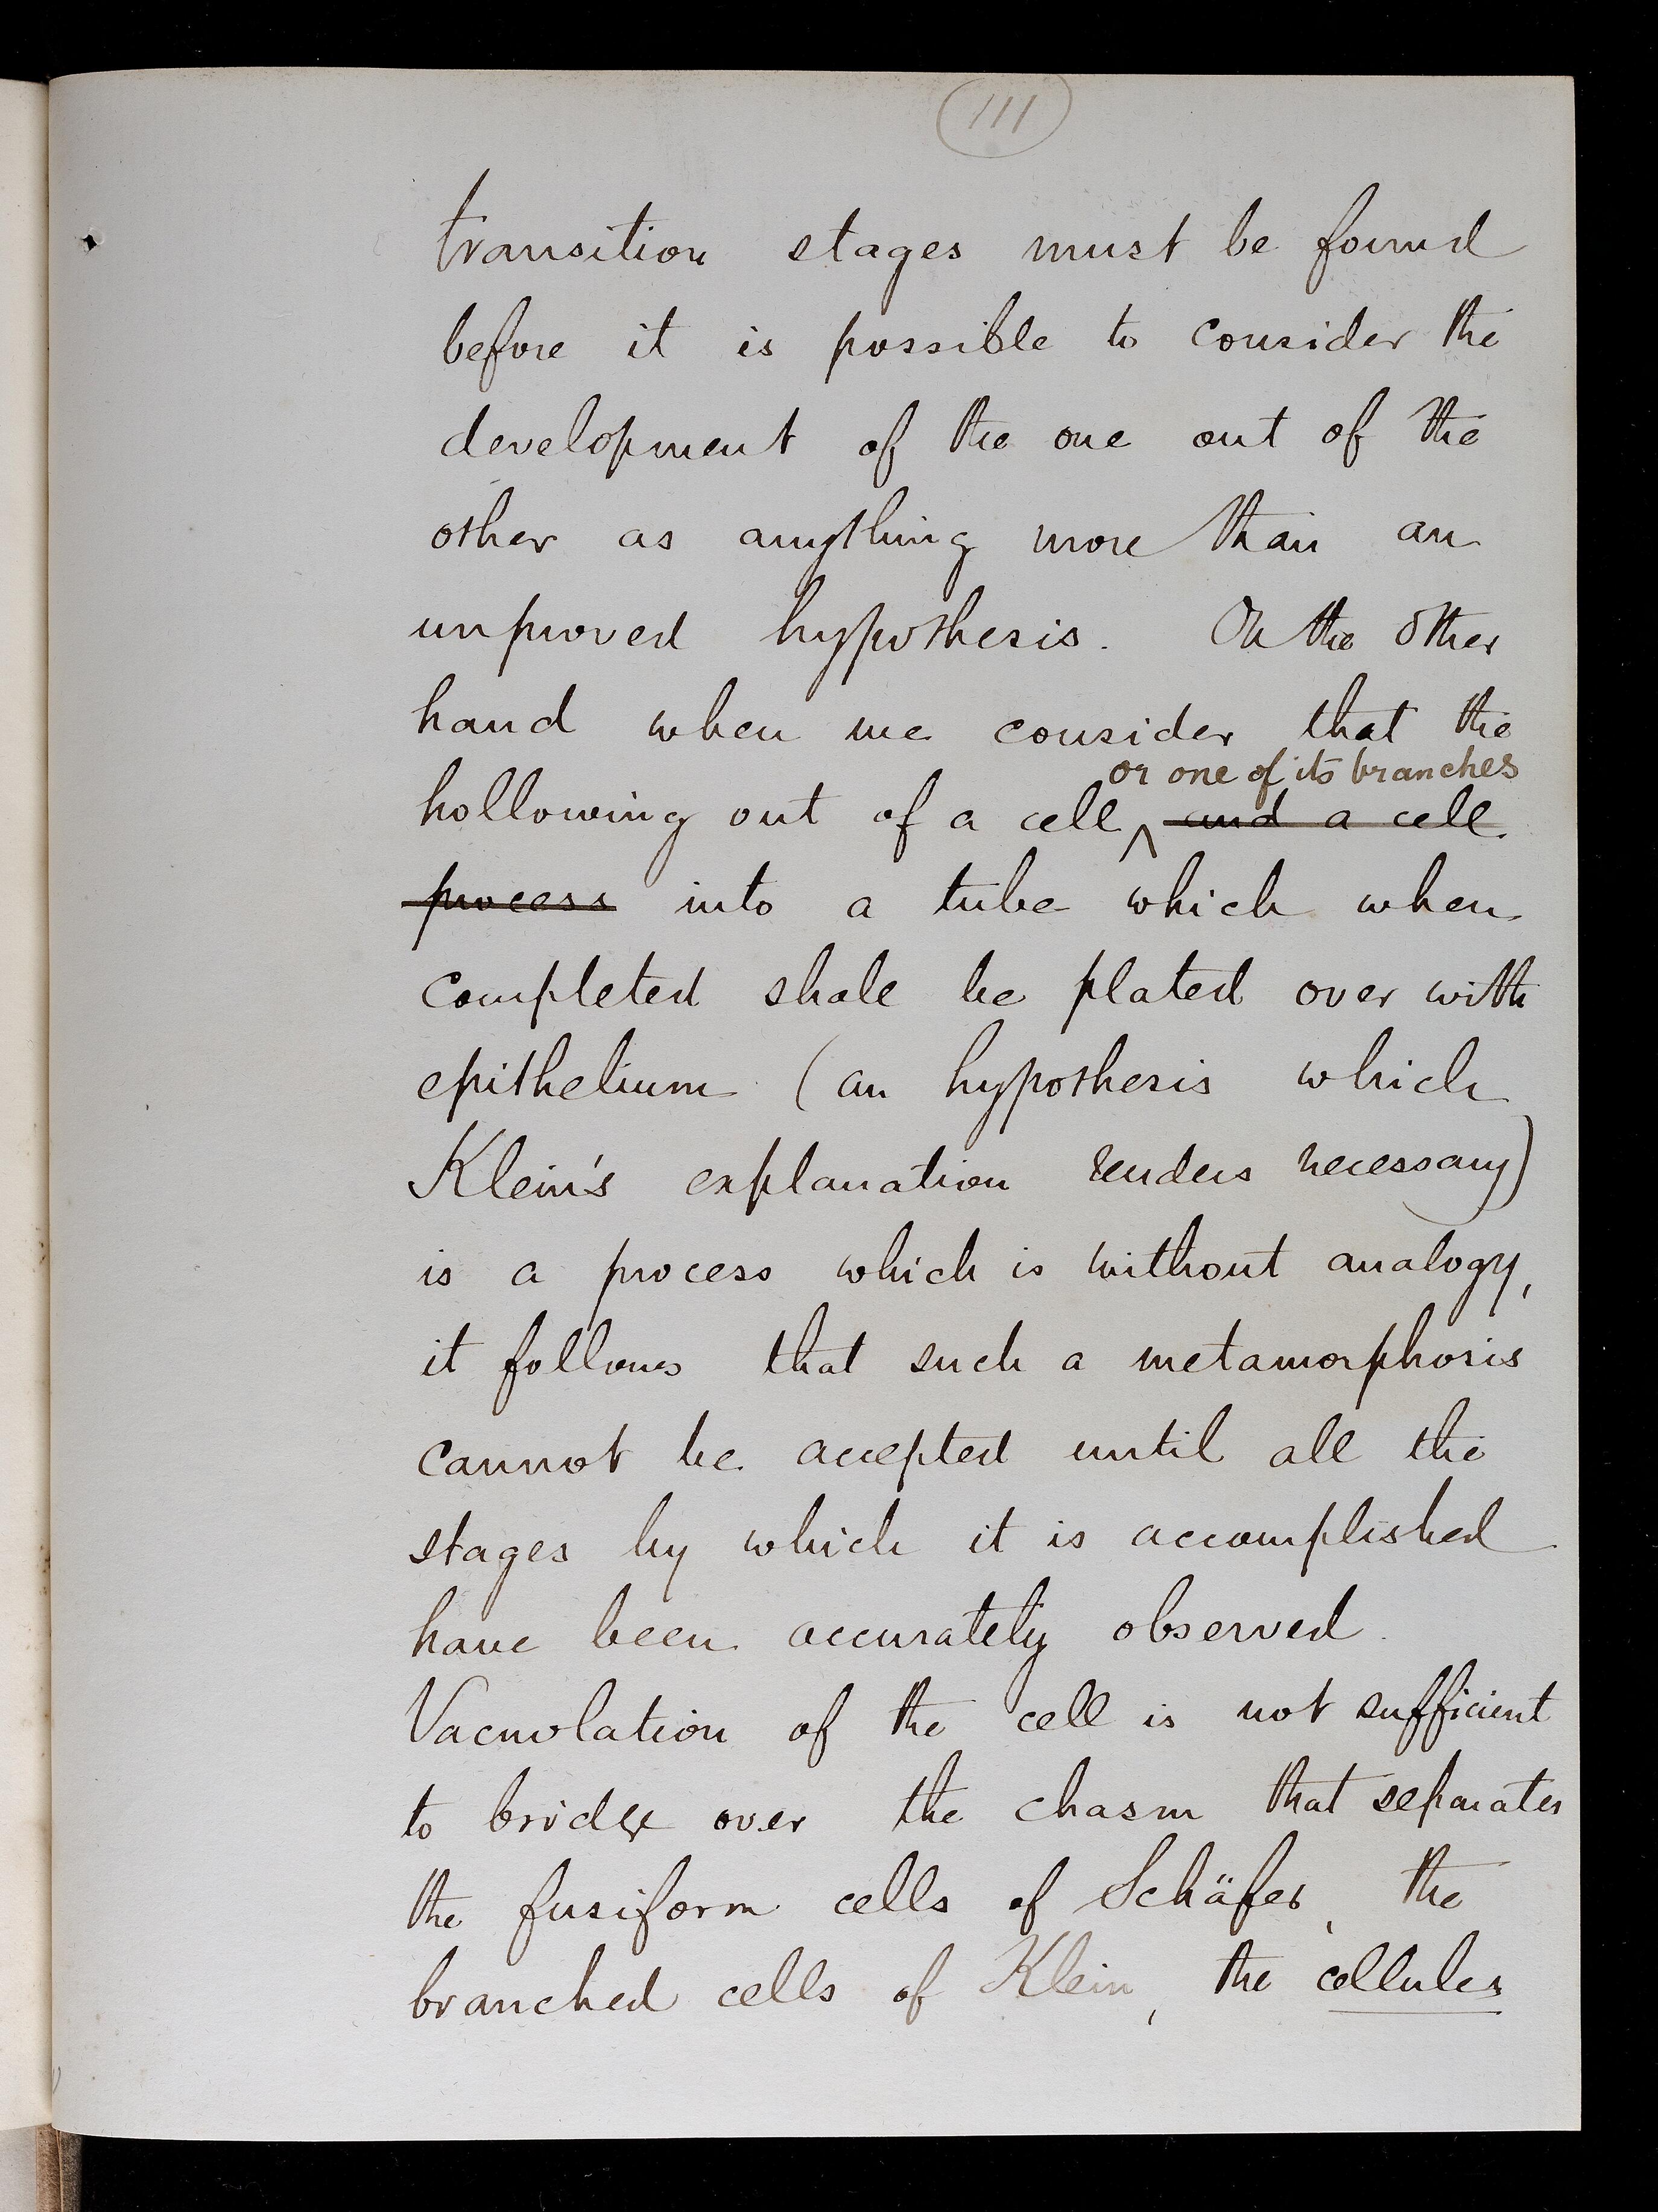 111
transition stages must be found
before it is possible to consider the
development of the one out of the
other as anything more than an
unproved hypothesis. On the other
hand when we consider that the
or one of its branches
hollowing out of a cell and a cell
process into a tube which when
completed shall be plated over with
epithelium (an hypothesis which
Klein's explanation renders necessary)
is a process which is without analogy,
it follows that such a metamorphosis
cannot be accepted until all the
stages by which it is accomplished
have been accurately observed.
Vacuolation of the cell is not sufficient
to bridge over the chasm that separates
the fusiform cells of Schäfer, the
branched cells of Klein, the cellules